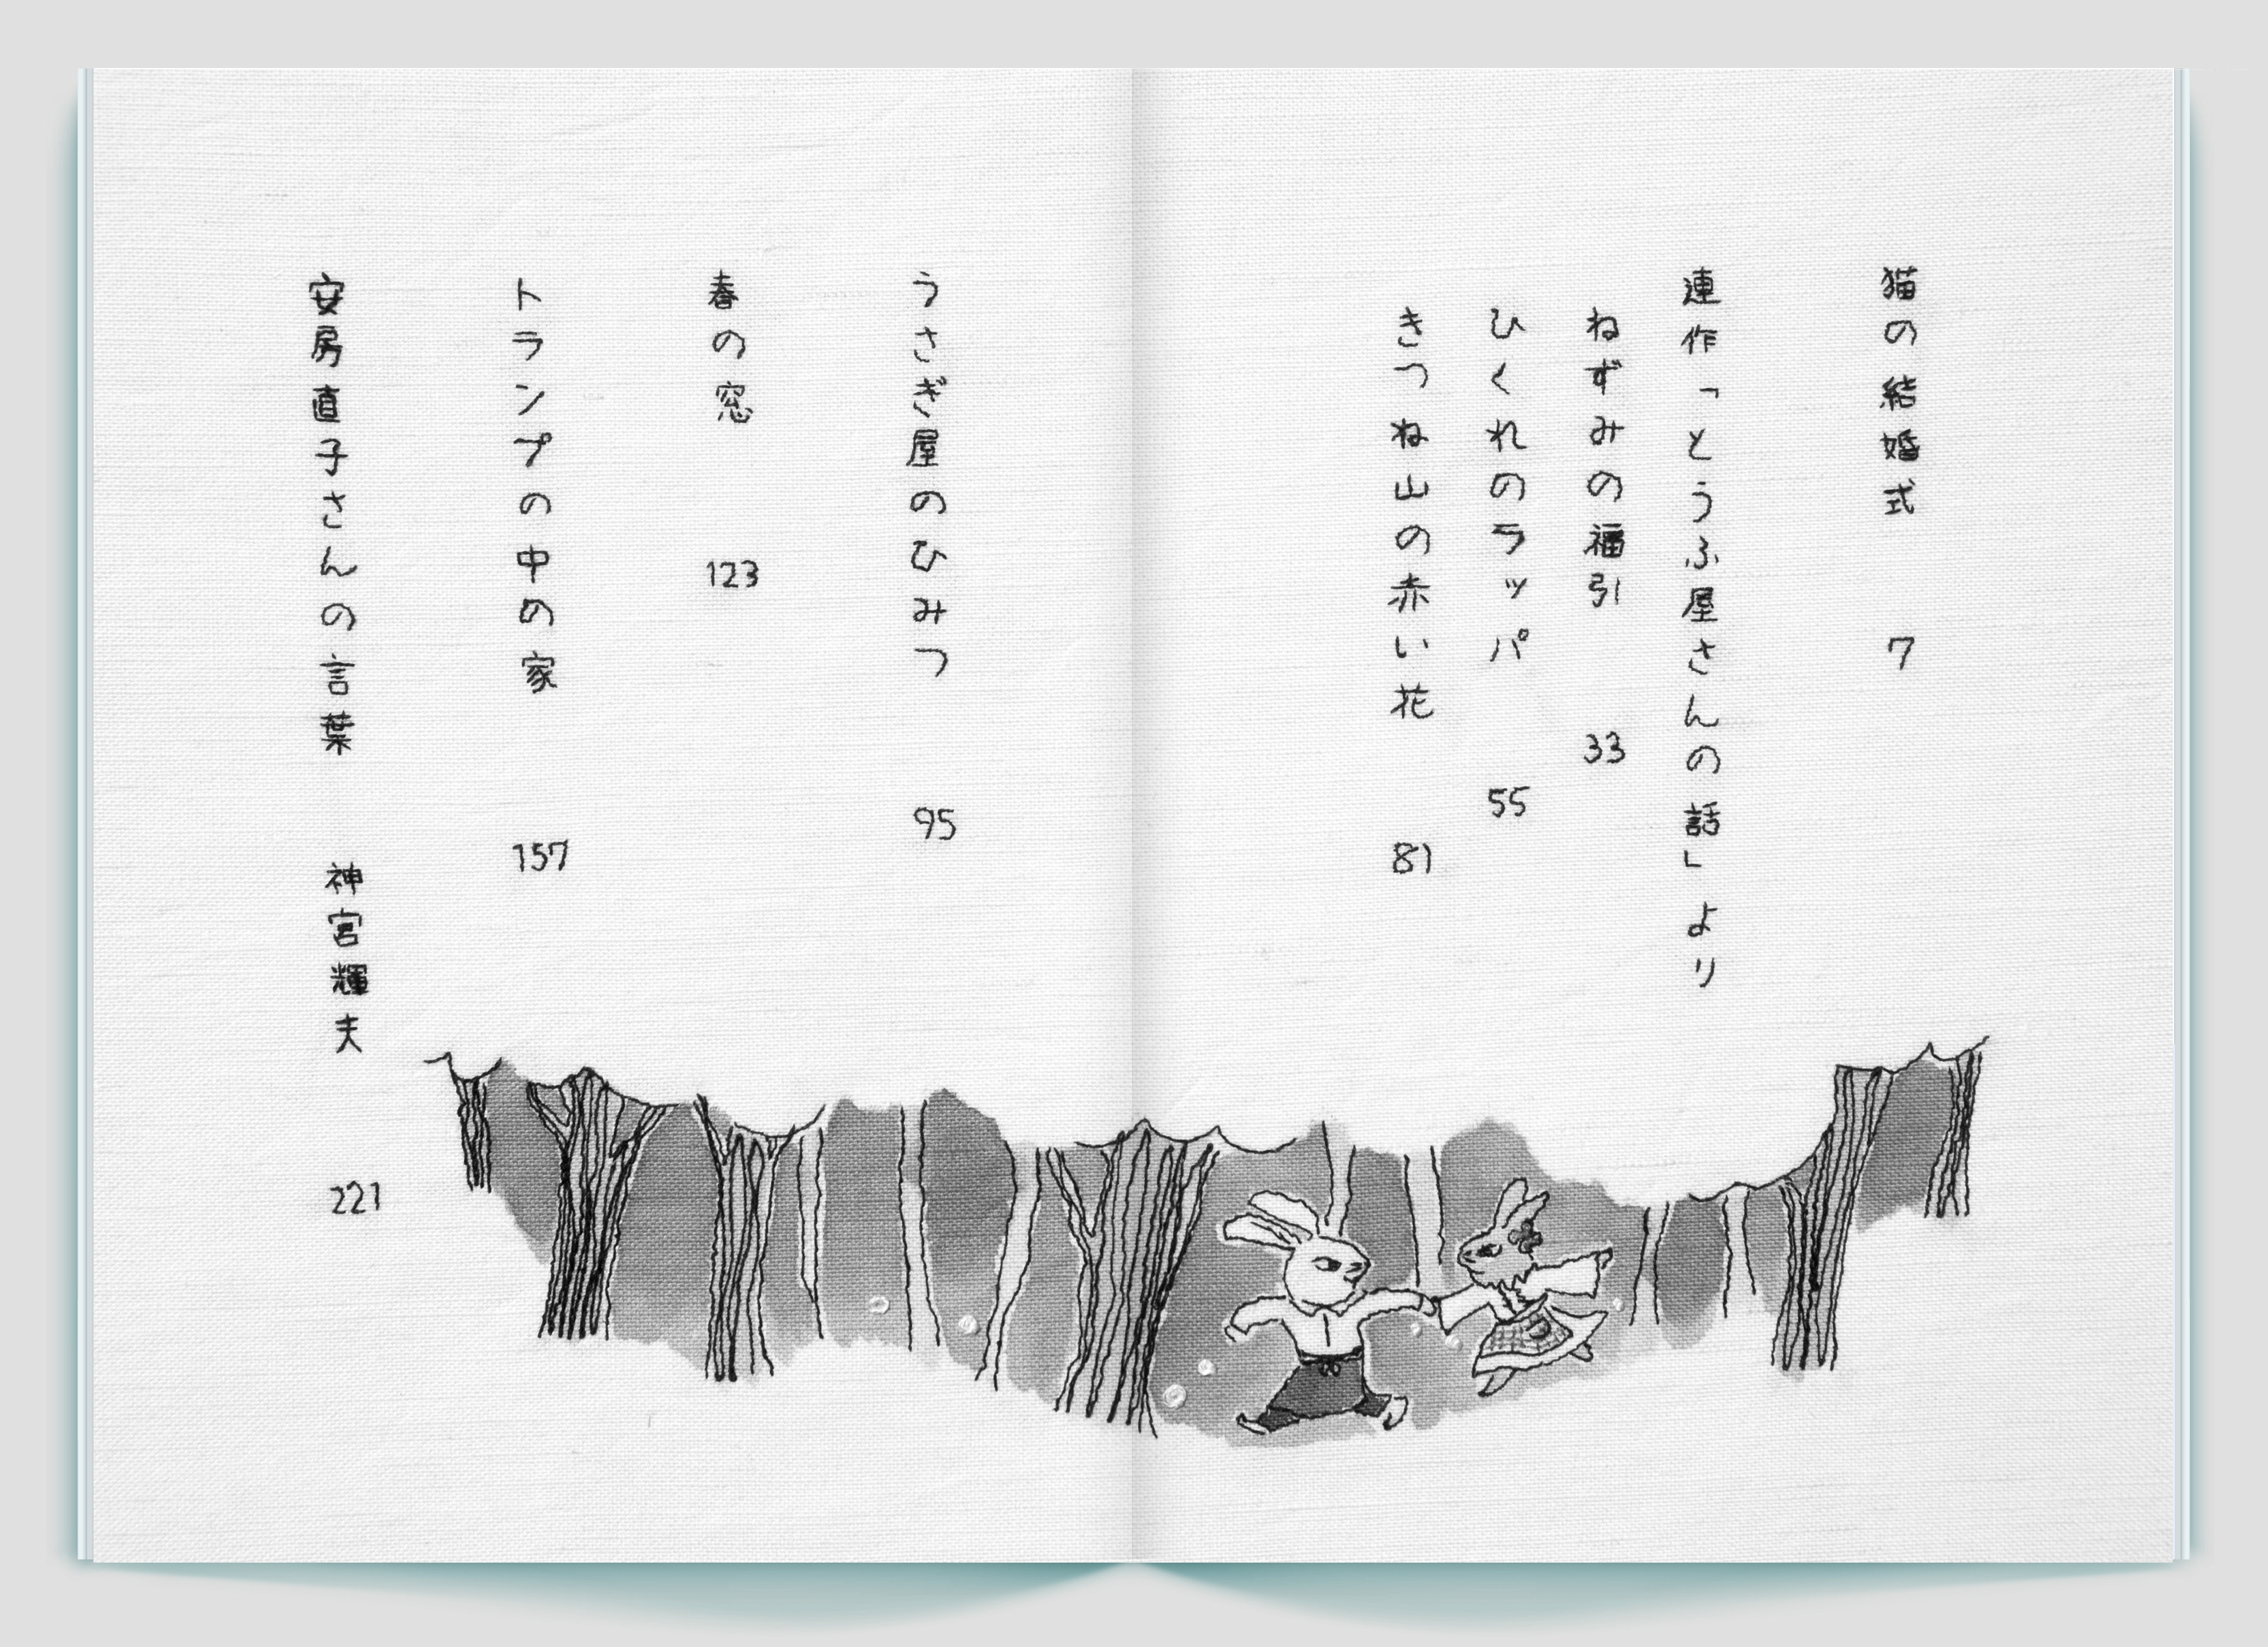 猫の結婚式 7
連作「とうふ屋さんの話」より
ねずみの福引 33
ひぐれのラッパ 55
きつね山の赤い花 81
うさぎ屋のひみつ 95
春の窓 123
トランプの中の家 157
安房直子さんの言葉 神宮輝夫 221